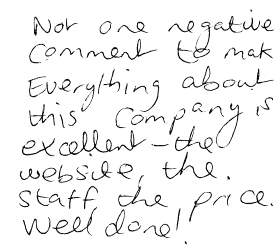 Not one negative
comment to mak
Everything about
this Company is
excellent - the
website, the.
staff the price.
Well done!